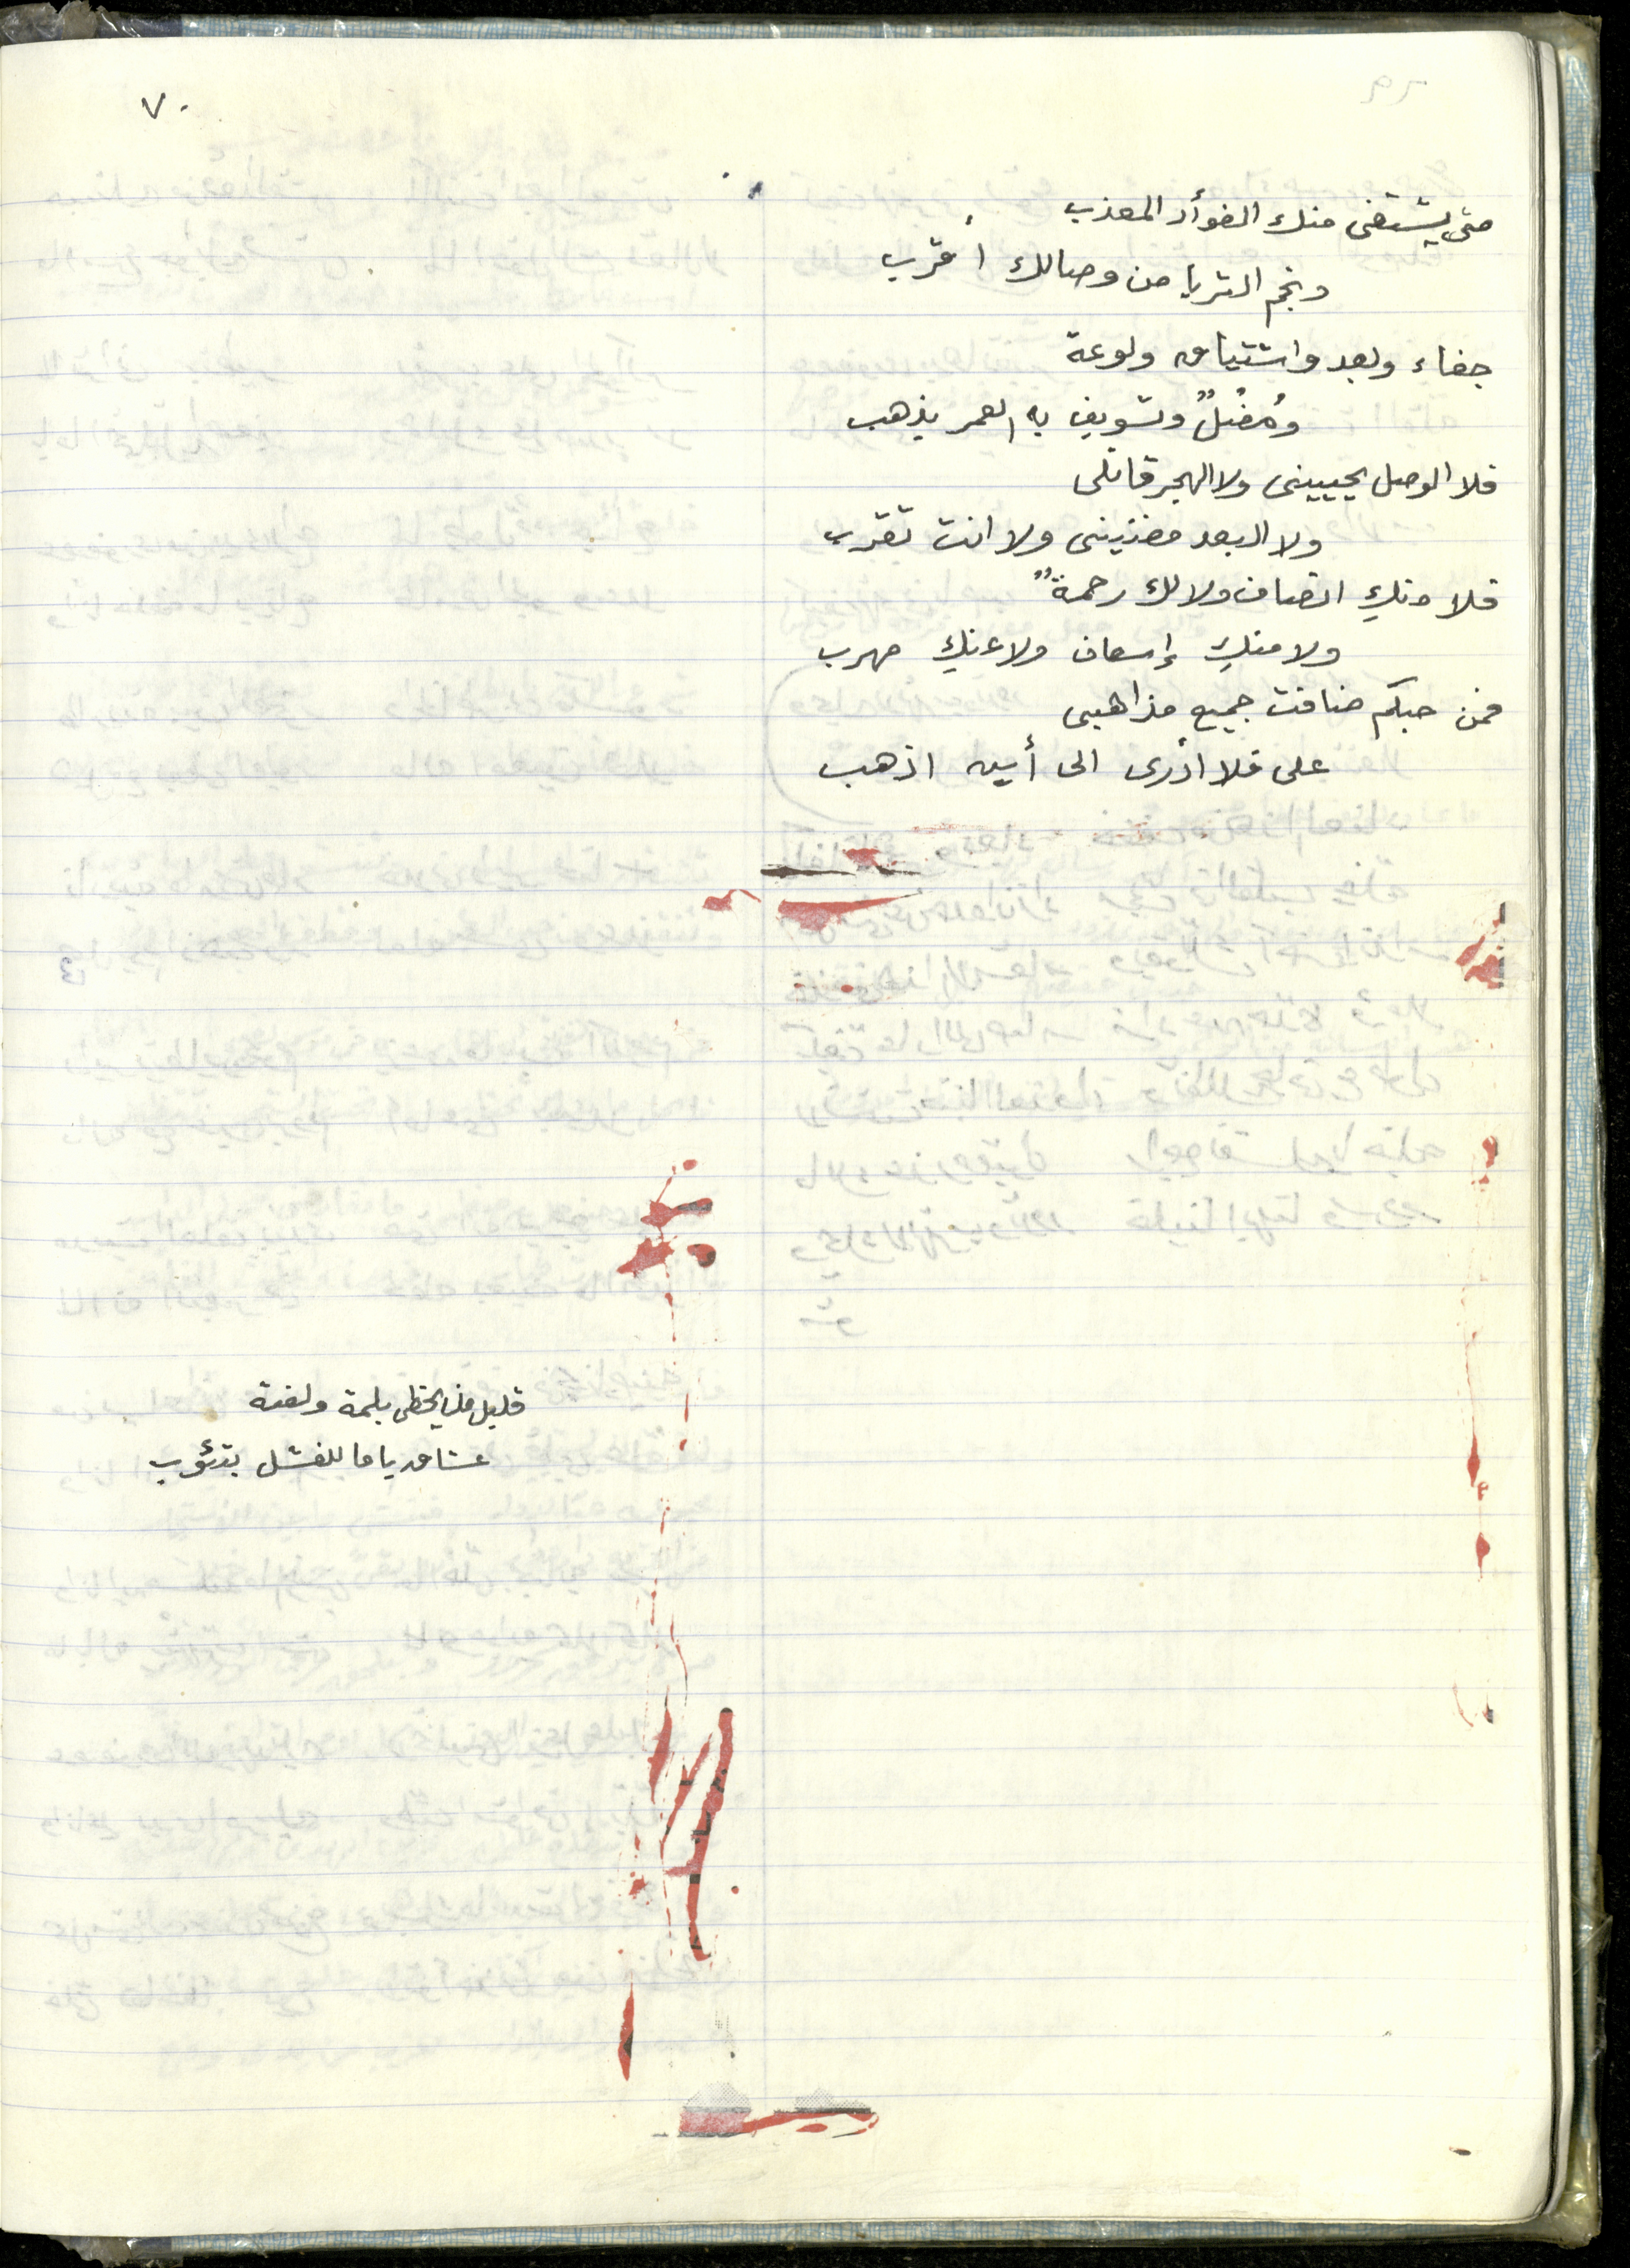 ٧٠
متى يشتفى منك الفوأد المعذب
ونجم الثريا من وصالك أقرب
جفاء وبعد واشتياق ولوعة
ومُضُلٌ وتسويف به العمر يذهب
فلا الوصل يحيينى ولا الهجر قاتلى
ولا البعد مضنينى ولا انت تقرب
فلا منكِ انصاف ولا لك رحمةٌ
ولا منكِ إسعاف ولا عنكِ مهرب
فمن حبكم ضاقت جميع مذاهبى
على فلا ادرى الى أين اذهب
قليل من يحظى بلمة ولفتة
عشاق ياما للفشل بتئوب